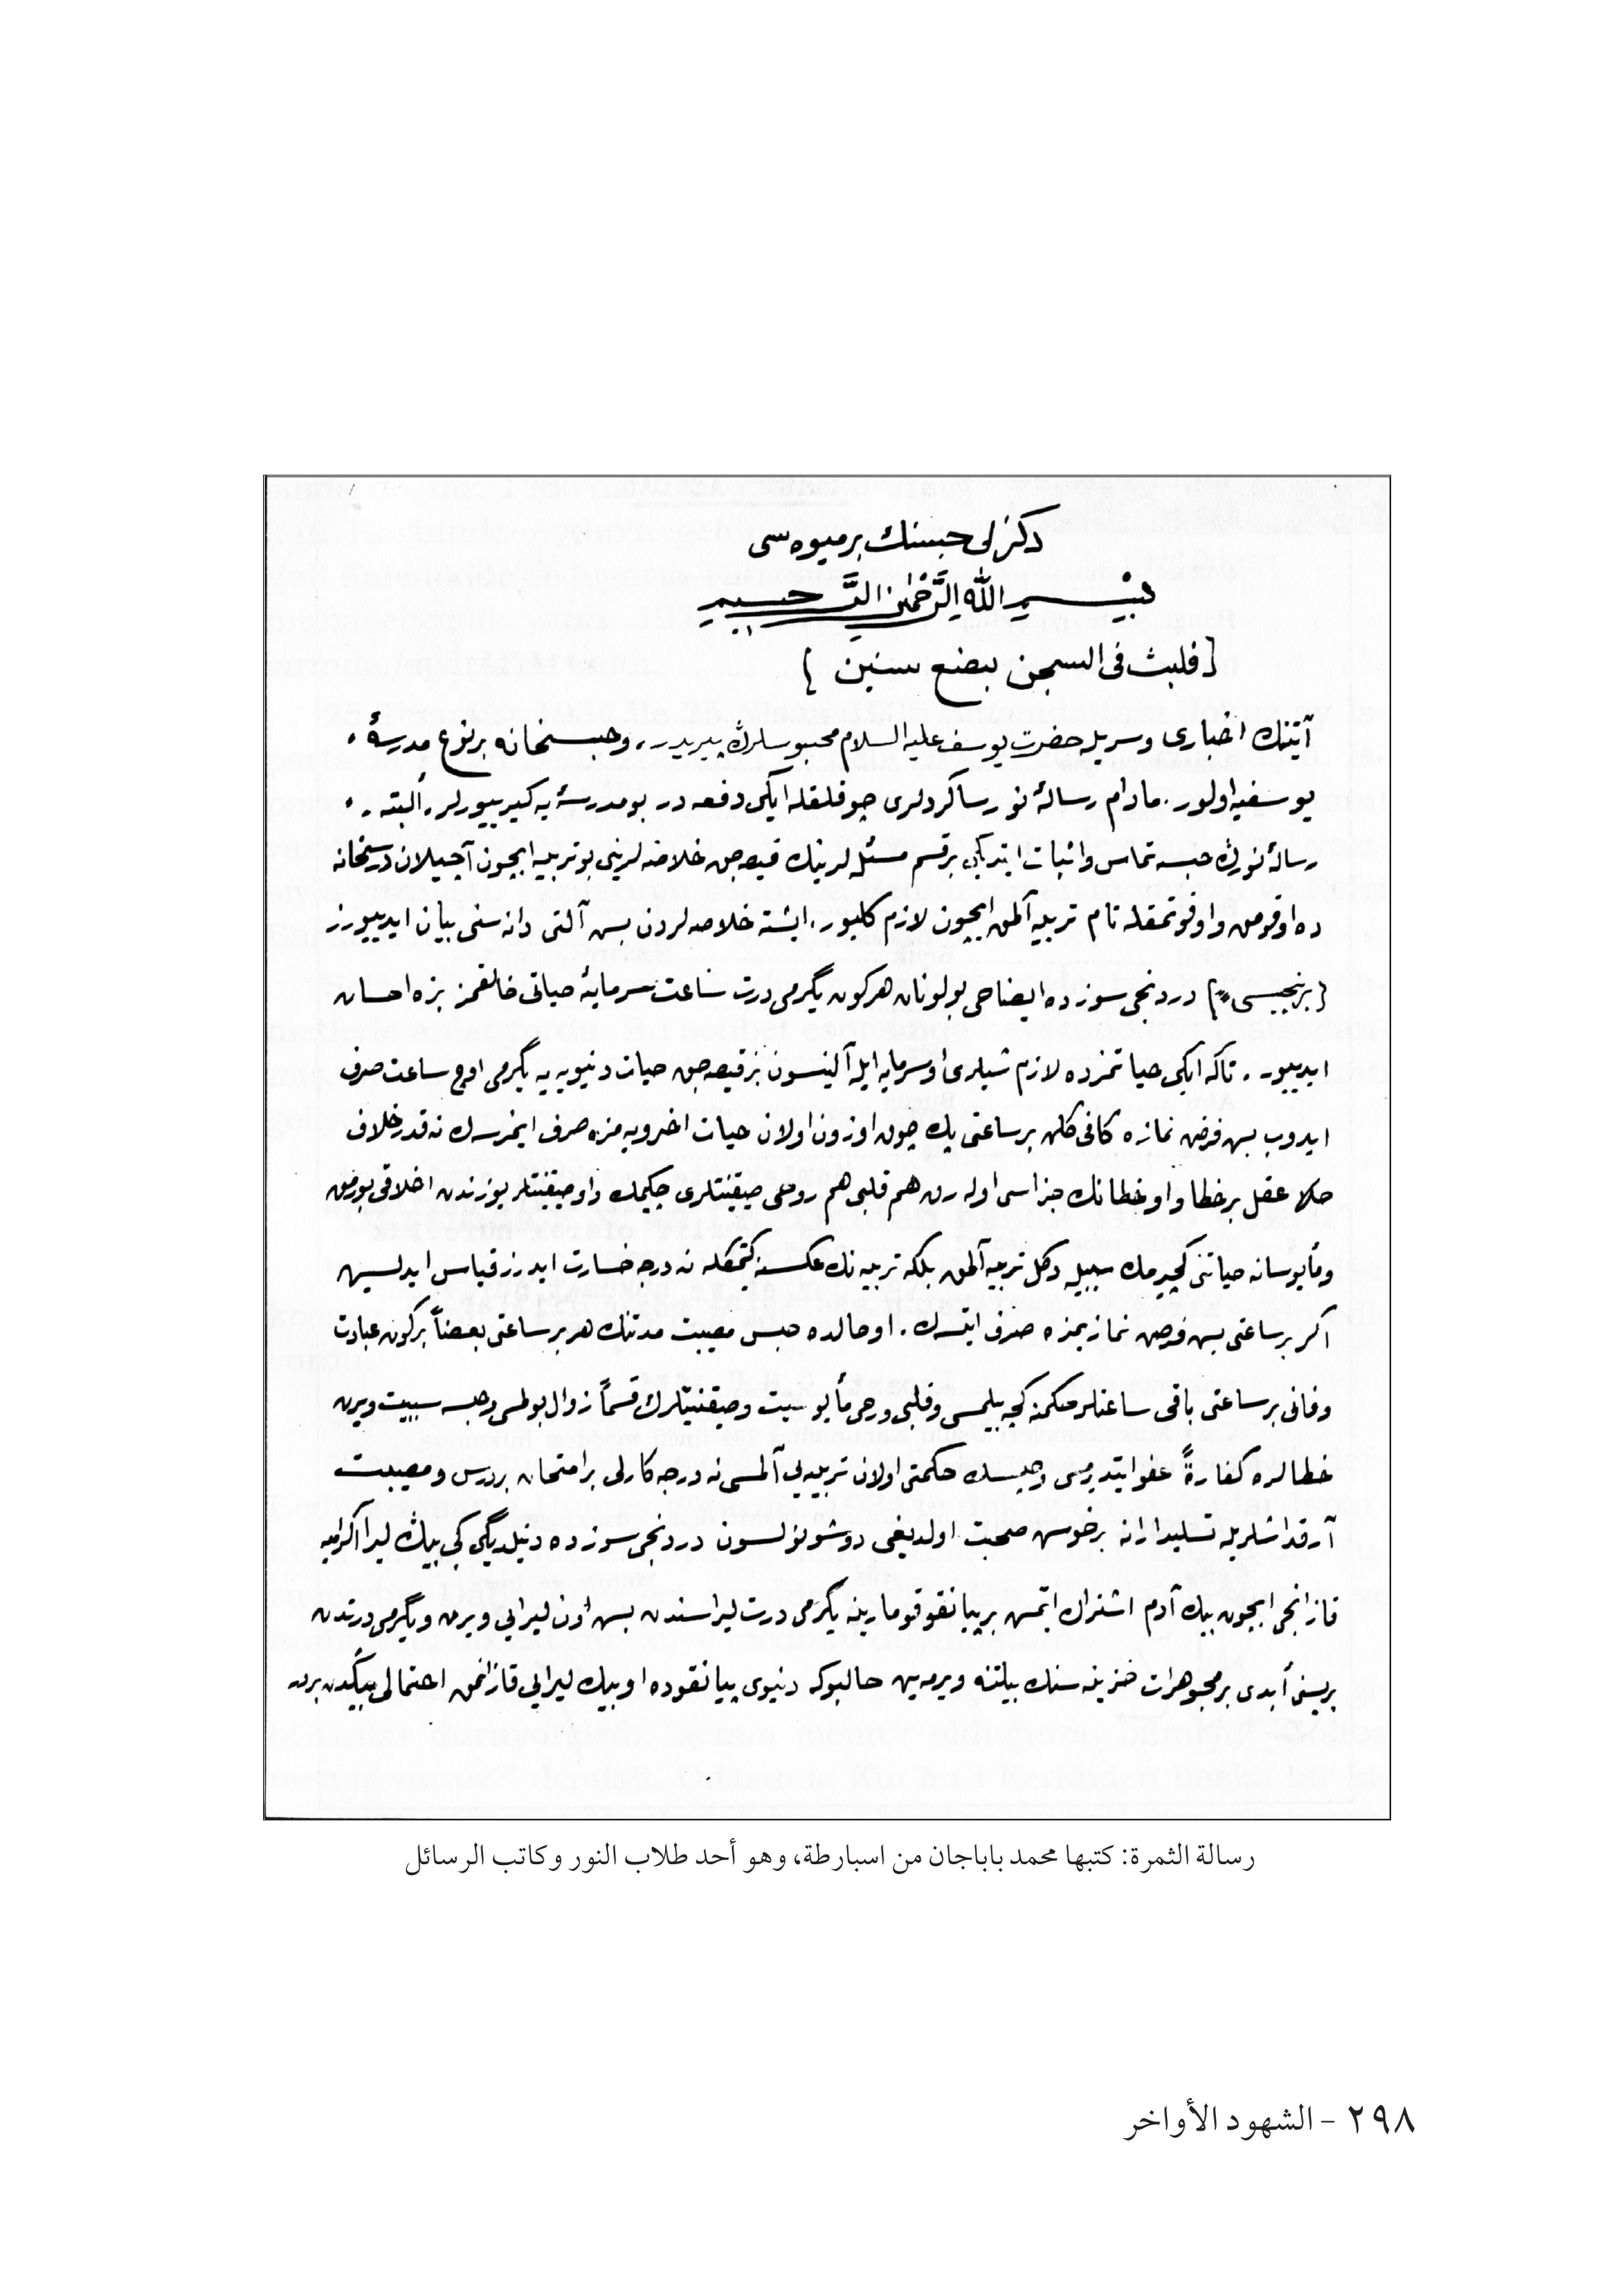 دكزلى حبسنك برميوه سى
بِسْمِ اللهِ الرَّحْمٰنِ الرَّحِيمِ
[فلبث فى السجن بضع سنين]
آيتنك اخبارى وسريله حضرت يوسف عليه السلام محبوسلرڭ پيريدر. وحبسخانه برنوع مدرسهٔ
يوسفيه اولور. مادام رسالهٔ نور شاكردلرى چوقلقله ايكى دفعه در بو مدرسه يه كيرييورلر. البته
رسالهٔ نورڭ حبسه تماس واثبات ايتديكى برقسم مسئله لرينك قيصه جق خلاصه لرينى بو تربيه ايچون آچيلان درسخانه
ده اوقومق واوقوتمقله تام تربيه آلمق ايچون لازم كلييور. ايشته خلاصه لردن بش آلتى دانه سنى بيان ايدييورز
[برنجيسى] دردنجى سوزده ايضاحى بولونان هركون يگرمى درت ساعت سرمايهٔ حياتى خالقمز بزه احسان
ايدييور. تاكه ايكى حياتمزده لازم شيلرى او سرمايه ايله آلينسون بز قيصه جق حيات دنيويه يه يگرمى اوچ ساعت صرف
ايدوب بش فرض نمازه كافى كلن برساعتى پك چوق اوزون اولان حيات اخرويه مزه صرف ايتمزسه ك نه قدر خلاف
عقل برخطا واو خطانك جزاسى اوله رق هم قلبى هم روحى صيقنتيلرى چكمك واو صيقنتيلر يوزندن اخلاقى بوزمق
ومأيوسانه حياتنى كچيرمك سببيله دكل تربيه آلمق بلكه تربيه نك عكسنه كيتمكله نه درجه خسارت ايدرز قياس ايدلسين
اكر برساعتى بش فرض نمازيمزه صرف ايتسه ك. اوحالده حبس مصيبت مدتنك هر برساعتى بعضاً بركون عبادت
وفانى برساعتى باقى ساعتلر حكمنه كچه بيلمسى وقلبى وروحى مأيوسيت وصيقنتيلرڭ قسماً زوال بولمسى وحبسه سببيت ويرن
خطالره كفارةً عفو ايتديرمسى وحبسك حكمتى اولان تربيه يى آلمسى نه درجه كارلى برامتحان بردرس ومصيبت
آرقداشلريله تسليدارانه برخوش صحبت اولديغى دوشونولسون دردنجى سوزده دنيلديگى كبى بيڭ ليرا اكراميه
قازانجى ايچون بيك آدم اشتراك ايتمش بر پيانقو قومارينه يگرمى درت ليراسندن بش اون ليرايى ويرن ويگرمى درتدن
بريسنى أبدى برمجوهرات خزينه سنك بيلتنه ويرمه ين حالبوكه دنيوى پيانقوده او بيك ليرايى قازانمق احتمالى بيڭدن بردر
رسالة الثمرة: كتبها محمد باباجان من اسبارطة، وهو أحد طلاب النور وكاتب الرسائل
٢٩٨ - الشهود الأواخر